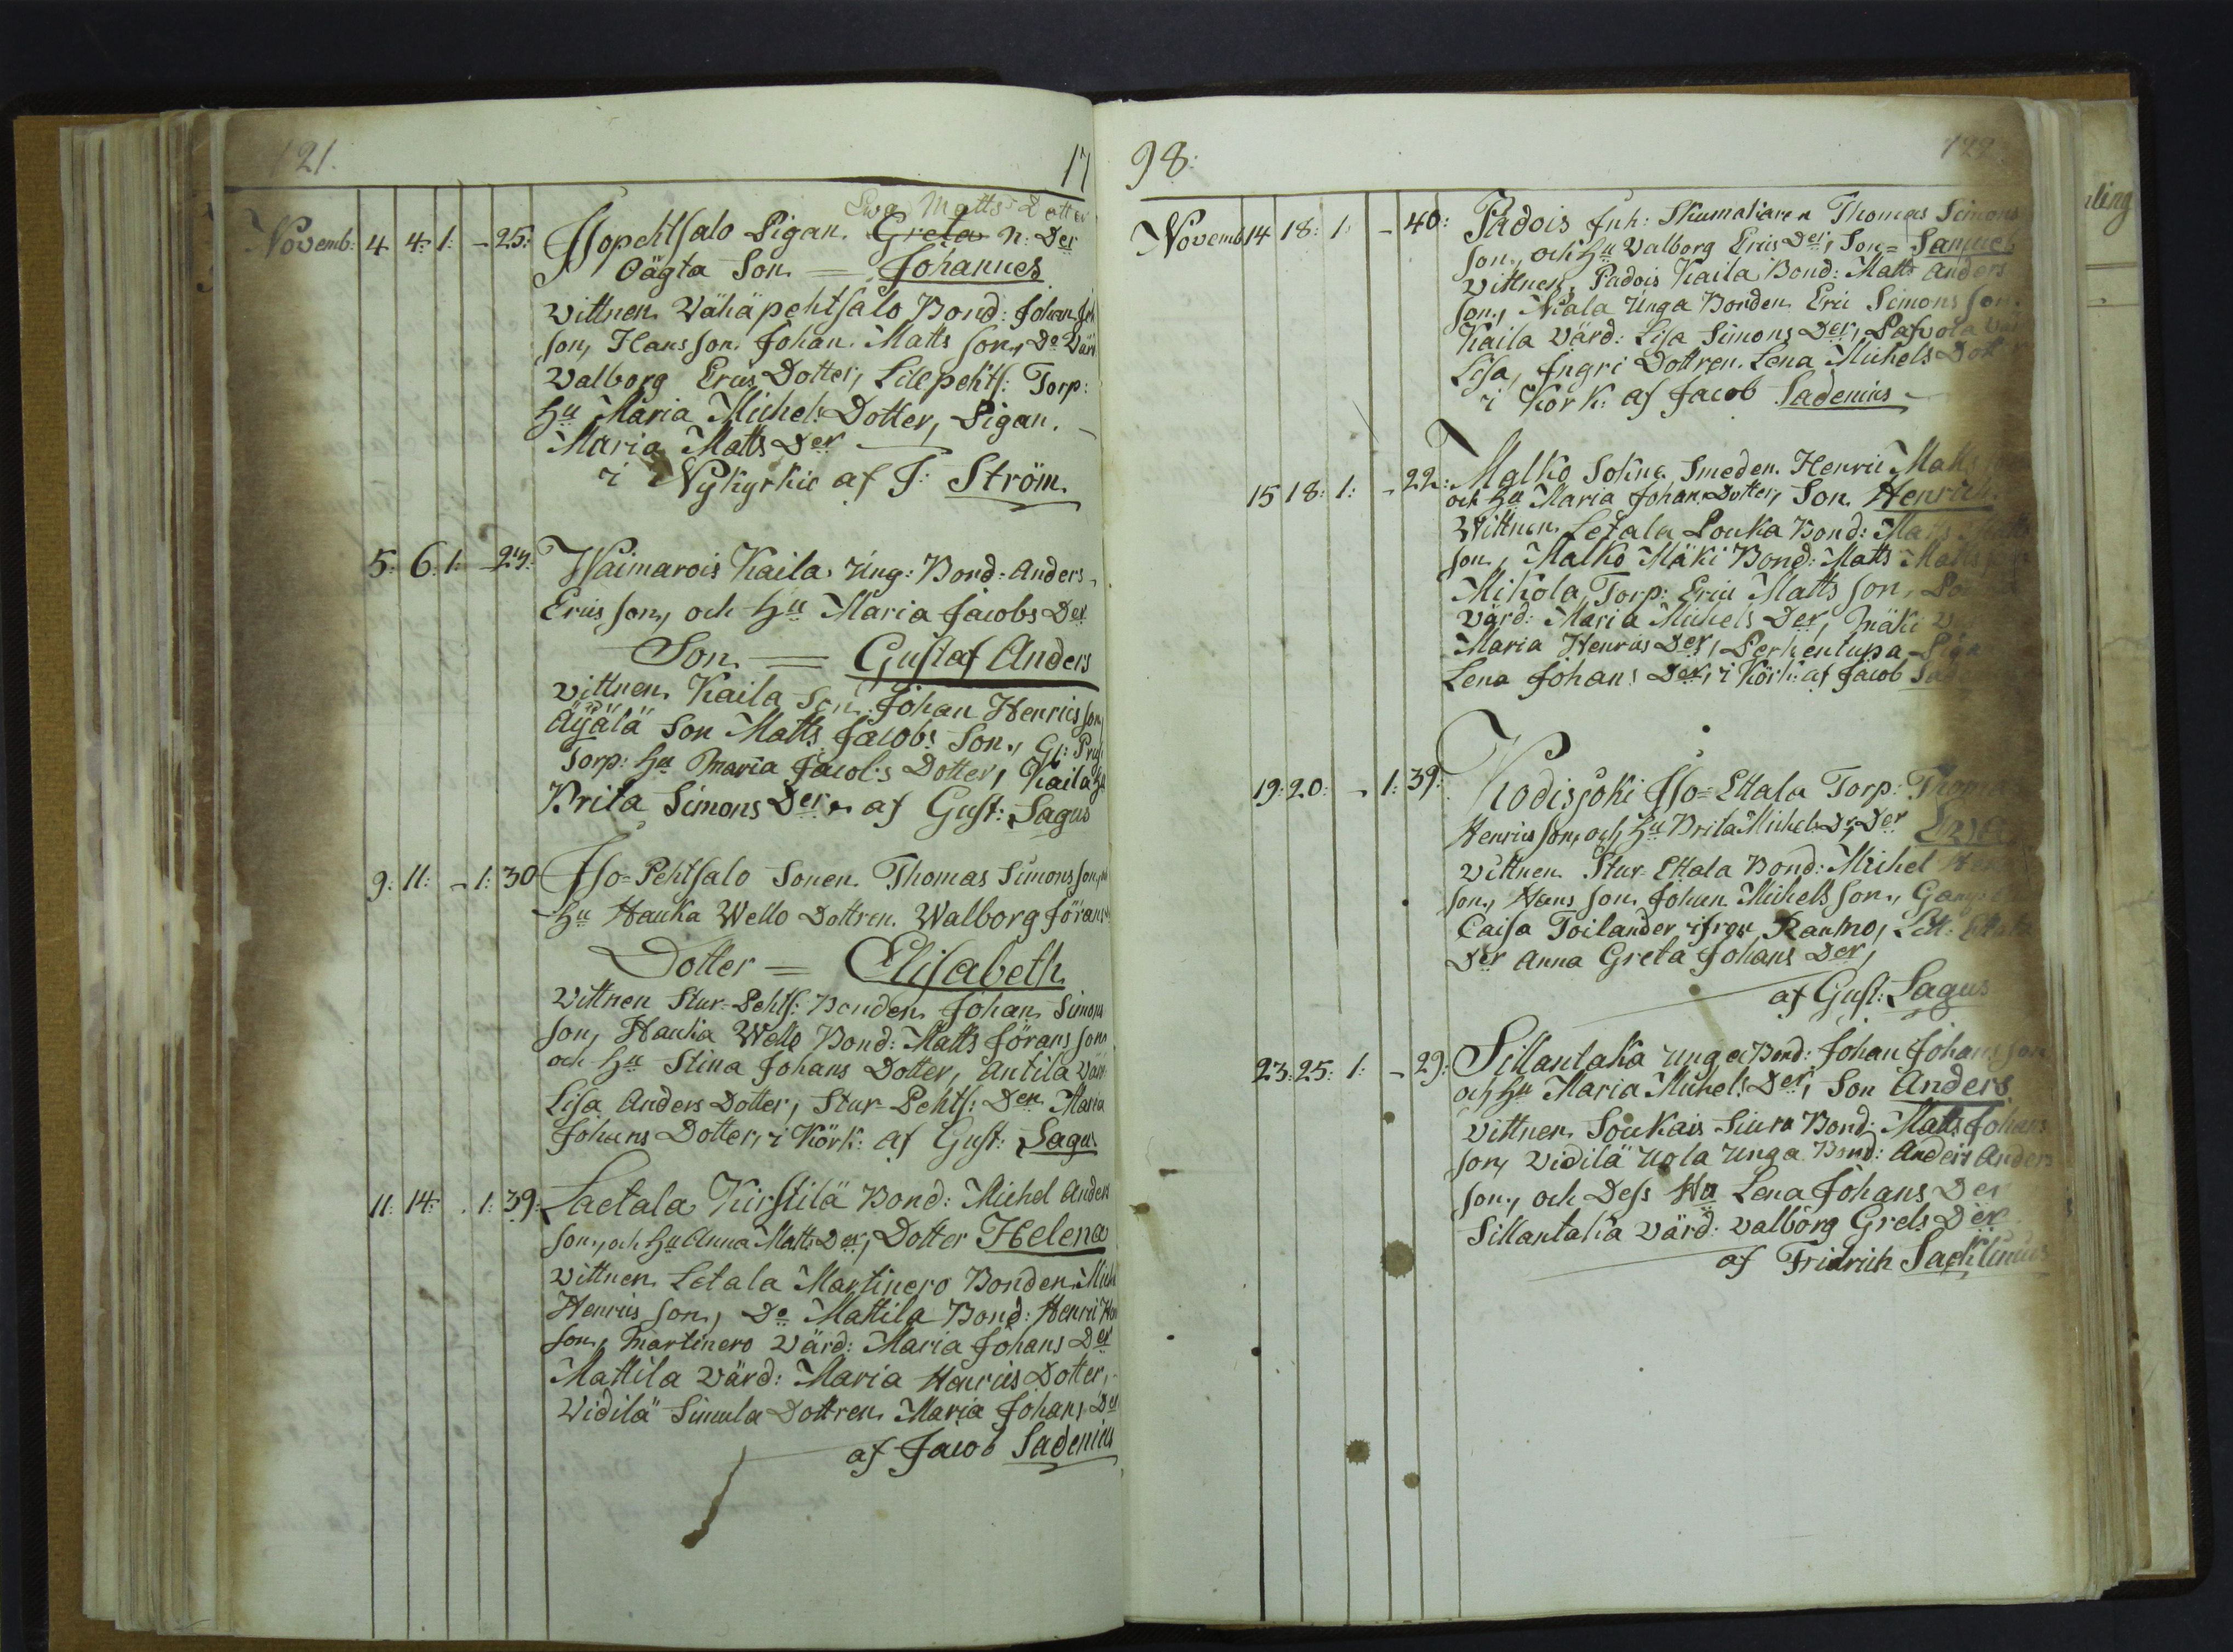 121.
17
Ewa Matts Dotter
Novemb: 4 4: 1: - 25: Isopehtsalo Pigan. Greta N: Der
Oägta Son = Johannes
vittnen. Vähäpehtsalo Bond: Johan
son, Hans son. Johan Matts son, Do Värd
Valborg Erics Dotter, Lilepehts: Torp:
Hu Maria Michels Dotter, Pigan. -
Maria Matts Der
i Nykyrkio af J: Ström.
5: 6: 1: - Waimarois Kaila Ung: Bond: Anders
Erics son, och Hu Maria Jacobs Der
Son = Gustaf Anders
vittnen. Kaila Son. Johan Henrics son
Äyälä Son Matts Jacobs Son,
Torp: Hu Maria Jacobs Dotter, Kaila
Brita Simons Der af Gust: Sagus
9: 11: - 1: 30 Iso-Pehtsalo Sonen. Thomas Simons son,
Hu Hauka Wello Dottren. Walborg Jörans
Dotter = Elisabeth
vittnen Stur-Pehts: Bonden Johan Simons
son, Hauka Wello Bond: Matts Jörans son
och Hu Stina Johans Dotter, Antila Värd
Lisa Anders Dotter, Stur-Pehts: Der. Maria
Johans Dotter, i Körk: af Gust: Sagus
11: 14: . 1: 39: Laetala Kirstilä Bond: Michel Anders
son, och Hu Anna Matts Der, Dotter Helena
vittnen. Letala Martinero Bonden
Henrics son, Do Mattila Bond: Henric
son, Martinero Värd: Maria Johans Der
Mattila Värd: Maria Henrics Dotter,
Vidilä Simula Dottren. Maria Johans Der
af Jacob Sadenius
98:
122
Novemb 14 18: 1: - 40: Padois Inh: Skumakaren Thomas Simons
son, och Hu Valborg Erics Der, Son = Samuel
vittnen, Padois Kaila Bond: Matts Anders
son, Unga Bonden. Eric Simons son.
Kaila Värd: Lisa Simons Der,
Lisa, Ingri Dottren. Lena Michels Dott
i Körk: af Jacob Sadenius
15 18: 1: - 22: Malko Sokne Smeden. Henric Matts
och Hu Maria Johans Dotter, Son. Henrich.
Vittnen. Letala Louka Bond: Matts
son, Malko Mäki Bond: Matts Matts son
Mikola, Torp: Eric Matts son,
Värd: Maria Michels Der, Mäki
Maria Henrics Der, Perhentupa Piga
Lena Johans Der, i Körk: af Jacob
19: 20: - 1: 39: Kodisjoki Iso-Ettala Torp:
Henrics son, och Hu Brita Michels Dr, Der
vittnen. Stur-Ettala Bond: Michel
son, Hans son. Johan Michels son,
Caisa Toilander ifrån Raumo,
Der Anna Greta Johans Der,
af Gust: Sagus
23: 25: 1: - 29: Sillantaka unga Bond: Johan Johans son
och Hu Maria Michels Der, Son Anders
vittnen. Soukais Siura Bond: Matts Johans
son, Vidilä Uola Unga Bond: Anders Anders
son, och Dess Hu Lena Johans Der
Sillantaka Värd: Valborg Grels Der
af Fridrich Sacklinius